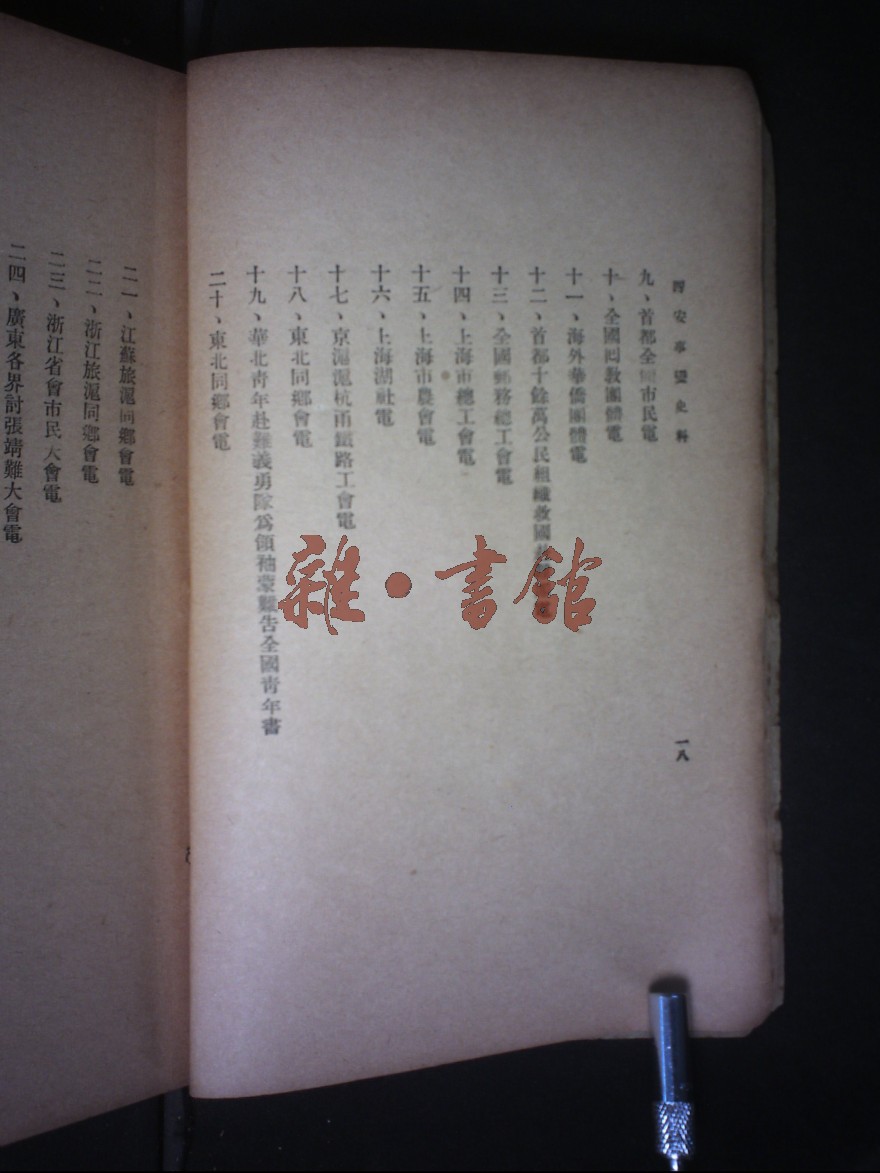 西安事變史料
九、首都全體市民電
十、全國回教團體電
十一、海外華僑團體電
十二、首都十餘萬公民組織救國
十三、全國郵務總工會電
十四、上海市總工會電
十五、上海市農會電
十六、上海湖社電
十七、京滬滬杭甬鐵路工會電
十八、東北同鄉會電
十九、華北青年赴難義勇隊爲領袖蒙難告全國青年書
二十、東北同鄉會電
一八
二一、江蘇旅滬同鄉會電
二二、浙江旅滬同鄉會電
二三、浙江省會市民大會電
二四、廣東各界討張靖難大會電
雜·書館